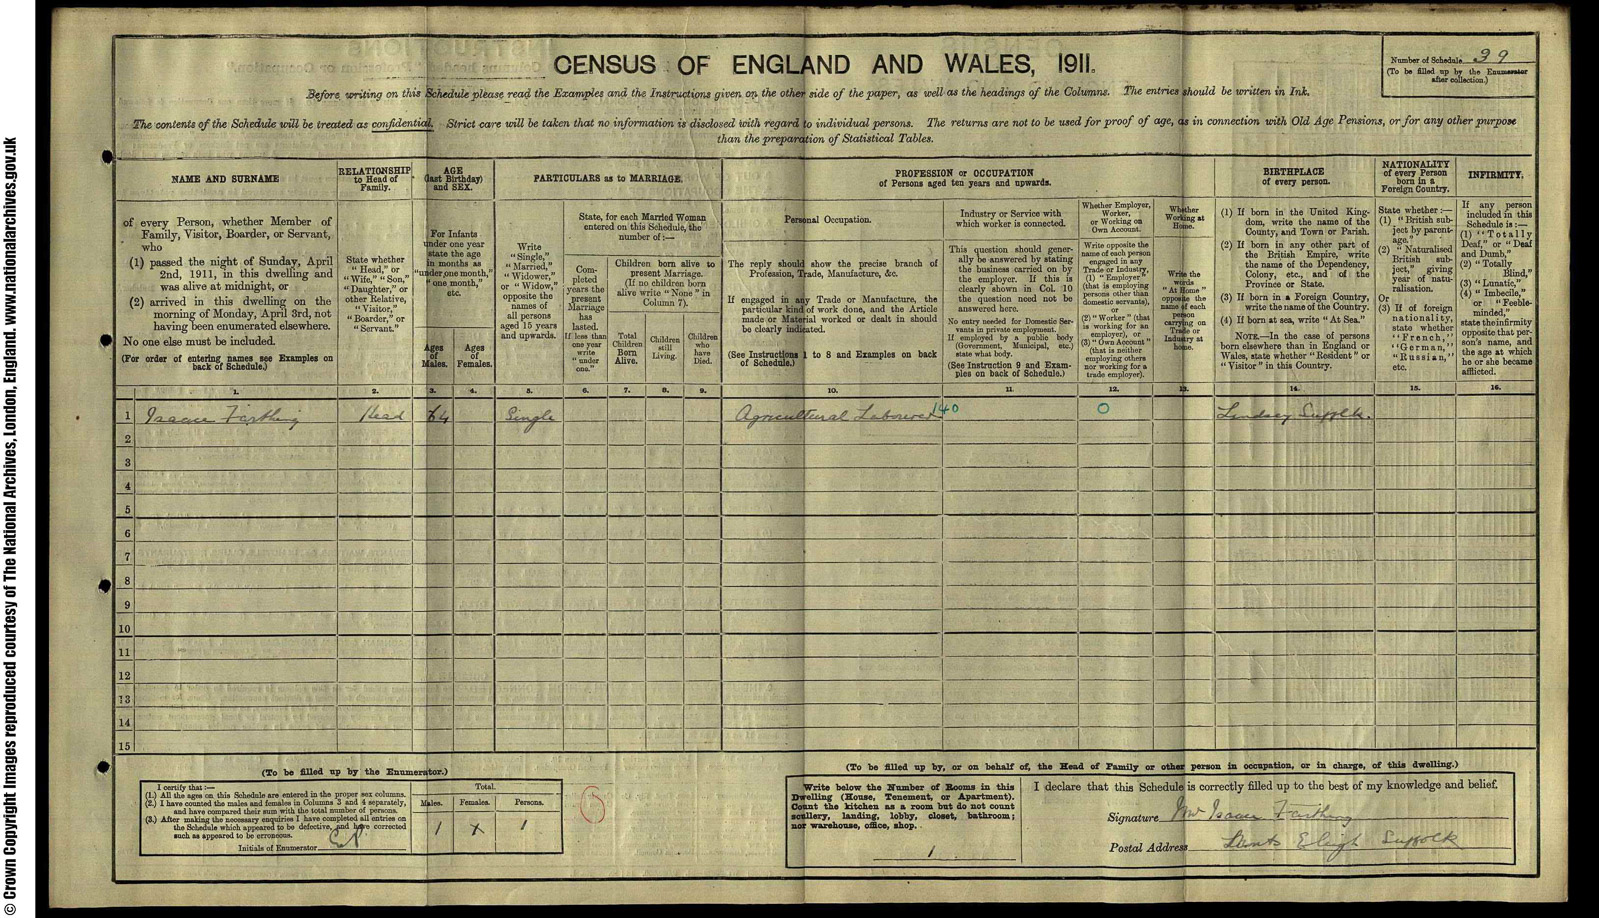 © Crown Copyright Images reproduced courtesy of The National Archives, London, England. www.nationalarchives.gov.uk
CENSUS OF ENGLAND AND WALES, 1911.
Number of Schedule 39
(To be filled up by the Enumerator
after collection.)
Before writing on this Schedule please read the Examples and the Instructions given on the other side of the paper, as well as the headings of the Columns. The entries should be written in Ink.
The contents of the Schedule will be treated as confidential. Strict care will be taken that no information is disclosed with regard to individual persons. The returns are not to be used for proof of age, as in connection with Old Age Pensions, or for any other purpose
than the preparation of Statistical Tables.
NAME AND SURNAME
of every Person, whether Member of
Family, Visitor, Boarder, or Servant,
who
(1) passed the night of Sunday, April
2nd, 1911, in this dwelling and
was alive at midnight, or
(2) arrived in this dwelling on the
morning of Monday, April 3rd, not
having been enumerated elsewhere.
No one else must be included.
(For order of entering names see Examples on
back of Schedule.)
RELATIONSHIP
to Head of
Family.
State whether
"Head," or
"Wife," "Son,"
"Daughter," or
other Relative,
"Visitor,"
"Boarder," or
"Servant."
AGE
(last Birthday)
and SEX.
For Infants
under one year
state the age
in months as
"under one month,"
"one month,"
etc.
Ages
of
Males.
Ages
of
Females.
PARTICULARS as to MARRIAGE.
Write
"Single,"
"Married,"
"Widower,"
or "Widow,"
opposite the
names of
all persons
aged 15 years
and upwards.
State, for each Married Woman
entered on this Schedule, the
number of:—
Com-
pleted
years the
present
Marriage
has
lasted.
If less than
one year
write
"under
one."
Children born alive to
present Marriage.
(If no children born
alive write "None" in
Column 7).
Total
Children
Born
Alive.
Children
still
Living.
Children
who
have
Died.
PROFESSION or OCCUPATION
of Persons aged ten years and upwards.
Personal Occupation.
The reply should show the precise branch of
Profession, Trade, Manufacture, &c.
If engaged in any Trade or Manufacture, the
particular kind of work done, and the Article
made or Material worked or dealt in should
be clearly indicated.
(See Instructions 1 to 8 and Examples on back
of Schedule.)
Industry or Service with
which worker is connected.
This question should gener-
ally be answered by stating
the business carried on by
the employer. If this is
clearly shown in Col. 10
the question need not be
answered here.
No entry needed for Domestic Ser-
vants in private employment.
If employed by a public body
(Government, Municipal, etc.)
state what body.
(See Instruction 9 and Exam-
ples on back of Schedule.)
Whether Employer,
Worker,
or Working on
Own Account.
Write opposite the
name of each person
engaged in any
Trade or Industry,
(1) "Employer"
(that is employing
persons other than
domestic servants),
or
(2) "Worker" (that
is working for an
employer), or
(3) "Own Account"
(that is neither
employing others
nor working for a
trade employer).
Whether
Working at
Home.
Write the
words
"At Home"
opposite the
name of each
person
carrying on
Trade or
Industry at
home.
BIRTHPLACE
of every person.
(1) If born in the United King-
dom, write the name of the
County, and Town or Parish.
(2) If born in any other part of
the British Empire, write
the name of the Dependency,
Colony, etc., and of the
Province or State.
(3) If born in a Foreign Country,
write the name of the Country.
(4) If born at sea, write "At Sea."
NOTE.—In the case of persons
born elsewhere than in England or
Wales, state whether "Resident" or
"Visitor" in this Country.
NATIONALITY
of every Person
born in a
Foreign Country.
State whether:—
(1) "British sub-
ject by parent-
age."
(2) "Naturalised
British sub-
ject," giving
year of natu-
ralisation.
Or
(3) If of foreign
nationality,
state whether
"French,"
"German,"
"Russian,"
etc.
INFIRMITY.
If any person
included in this
Schedule is:—
(1) "Totally
Deaf," or "Deaf
and Dumb,"
(2) "Totally
Blind,"
(3) "Lunatic,"
(4) "Imbecile,"
or "Feeble-
minded,"
state the infirmity
opposite that per-
son's name, and
the age at which
he or she became
afflicted.
1. 2. 3. 4. 5. 6. 7. 8. 9. 10. 11. 12. 13. 14. 15. 16.
1 Isaac Farthing Head 64 Single Agricultural Labourer 140 0 Lindsey Suffolk.
2
3
4
5
6
7
8
9
10
11
12
13
14
15
(To be filled up by the Enumerator.)
I certify that:—
(1.) All the ages on this Schedule are entered in the proper sex columns.
(2.) I have counted the males and females in Columns 3 and 4 separately,
and have compared their sum with the total number of persons.
(3.) After making the necessary enquiries I have completed all entries on
the Schedule which appeared to be defective, and have corrected
such as appeared to be erroneous.
Initials of Enumerator
Total.
Males. Females. Persons.
1 x 1
(To be filled up by, or on behalf of, the Head of Family or other person in occupation, or in charge, of this dwelling.)
Write below the Number of Rooms in this
Dwelling (House, Tenement, or Apartment).
Count the kitchen as a room but do not count
scullery, landing, lobby, closet, bathroom;
nor warehouse, office, shop.
1
I declare that this Schedule is correctly filled up to the best of my knowledge and belief.
Signature Mr Isaac Farthing
Postal Address Eleigh Suffolk